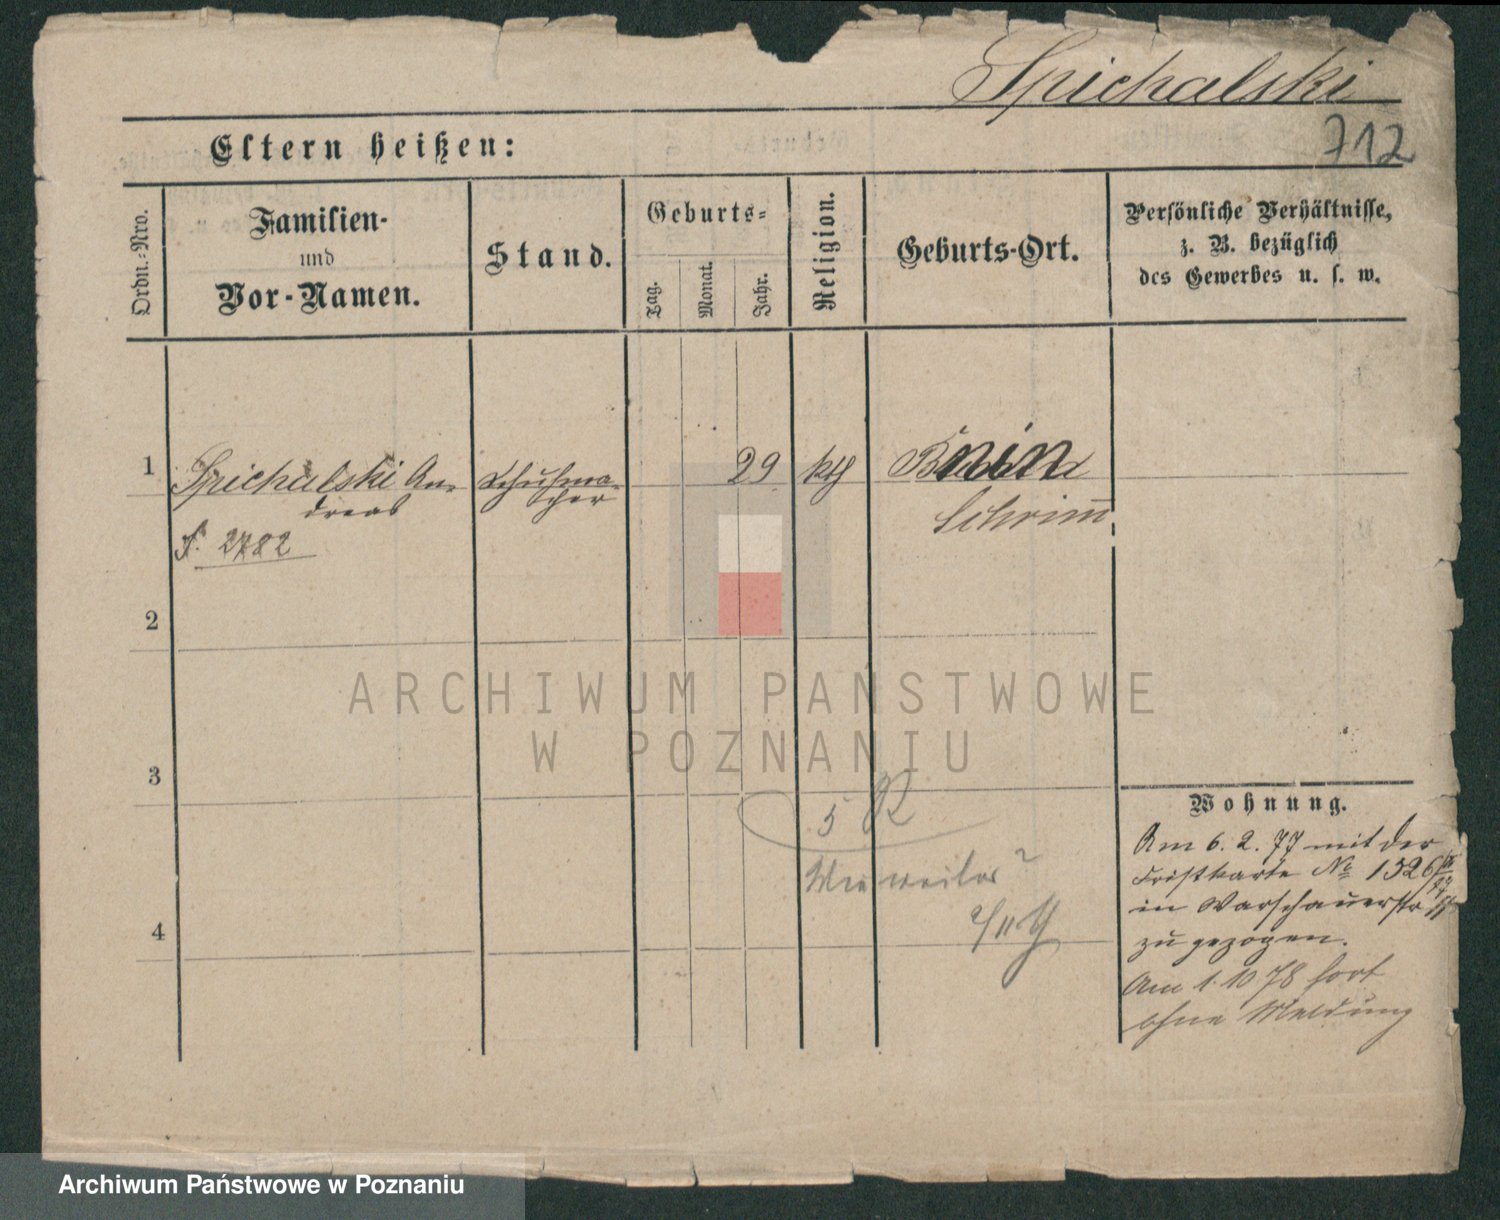 Spichalski
712
Eltern heißen:
Ordn.-Nro.
Familien-
und
Vor-Namen.
Stand.
Geburts-
Tag.
Monat.
Jahr.
Religion.
Geburts-Ort.
Persönliche Verhältnisse,
z. B. bezüglich
des Gewerbes u. s. w.
1
Spichalski An-
dreas
Schuhma-
cher
29
kth
Bnin
Schrimm
2782
2
3
4
5
Wie weiter?
Wohnung.
Am 6. 2. 77 mit der
No 1326
in Warschauerstr
zu gezogen.
Am 1. 10 78 fort
ohne Meldung
ARCHIWUM PAŃSTWOWE
W POZNANIU
Archiwum Państwowe w Poznaniu